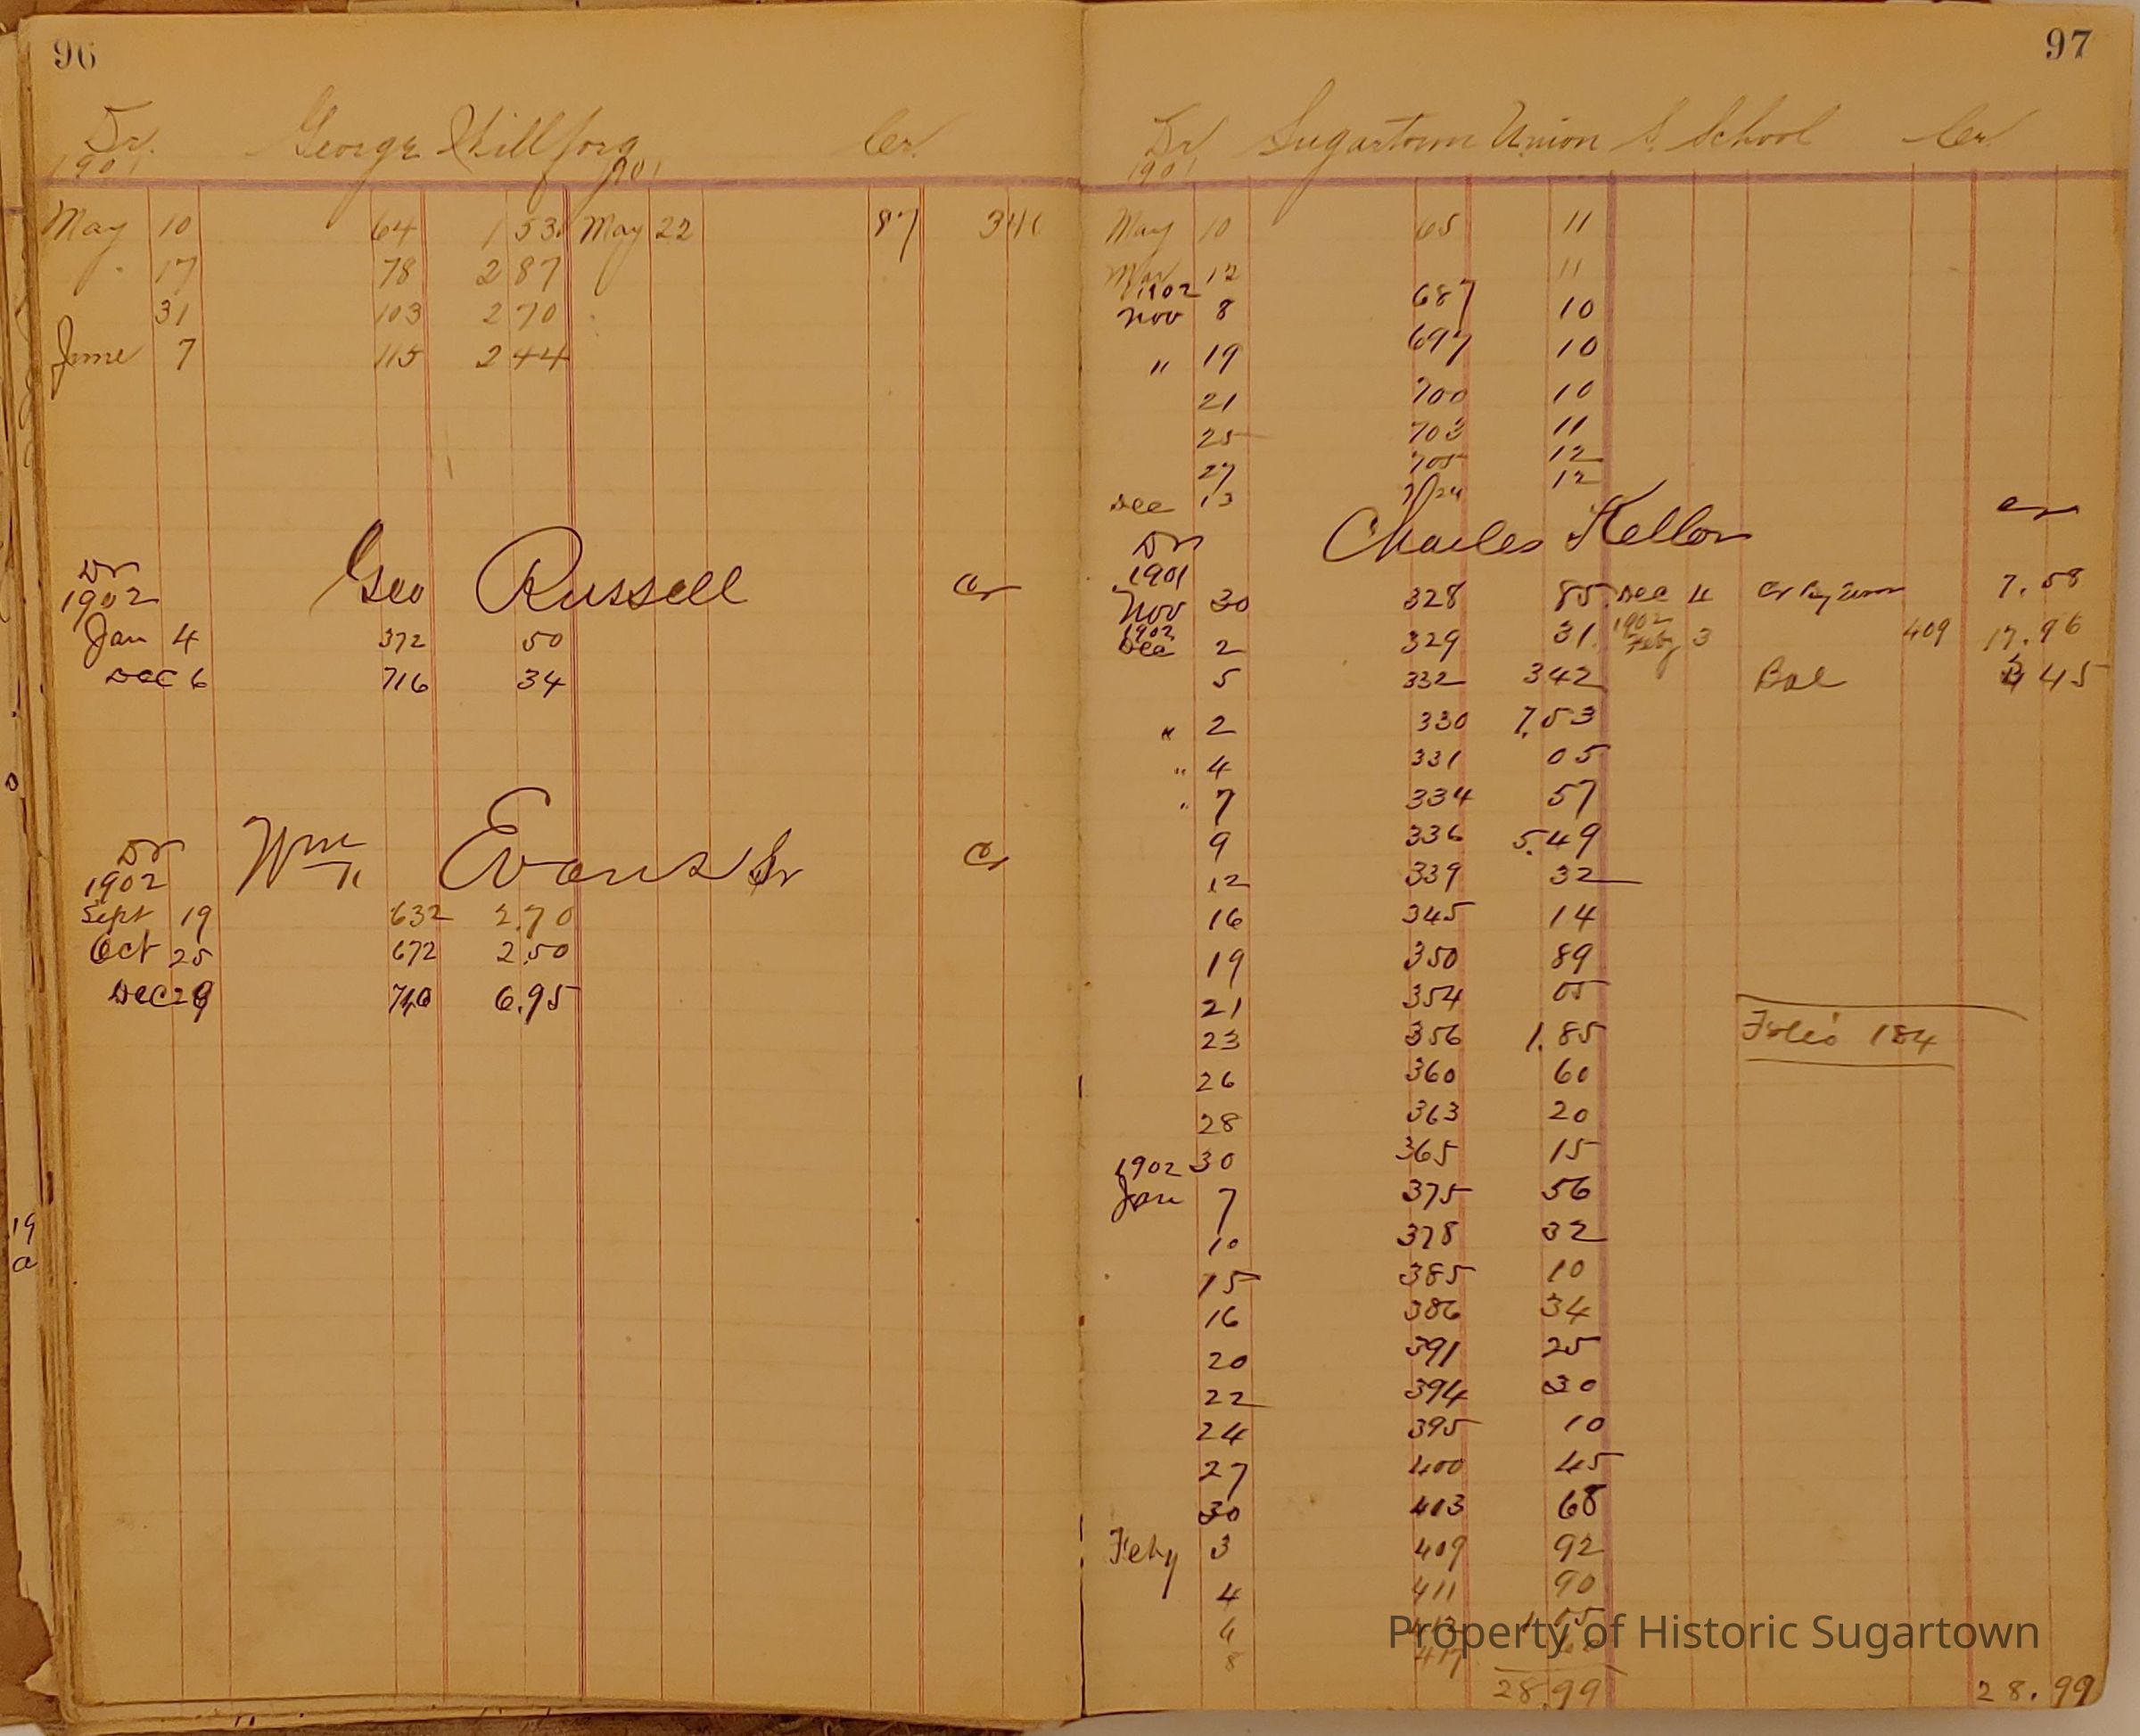 96
Dr. George Cr.
1901 1901
May 10 64 1 53 May 22 87 3 41
" 17 78 2 87
31 103 2 70
June 7 115 2 44
Dr Geo Russell Cr
1902
Jan 4 372 50
Dec 6 716 34
Dr Wm Evans Sr Cr
1902
Sept 19 632 2.70
Oct 25 672 2.50
Dec 29 6.95
97
Dr Sugartown Union S. School Cr
1901
May 10 65 11
12 11
1902
Nov 8 687 10
" 19 697 10
21 700 10
25 703 11
27 705 12
Dec 13 724 12
Dr Charles Kellor Cr
1901
Nov 30 328 85 Dec 4 Cr By 7.58
1902 1902
Dec 2 329 31 Feby 3 409 17.96
5 332 3 42 Bal 3 45
" 2 330 7.53
" 4 331 05
" 7 334 57
9 336 5.49
12 339 32
16 345 14
19 350 89
21 354 05
23 356 1.85 Folio 184
26 360 60
28 363 20
30 365 15
1902
Jan 7 375 56
10 378 32
15 385 10
16 386 34
20 391 25
22 394 30
24 395 10
27 400 45
30 403 68
Feby 3 409 92
4 411 90
6
8 417
28.99 28.99
Property of Historic Sugartown